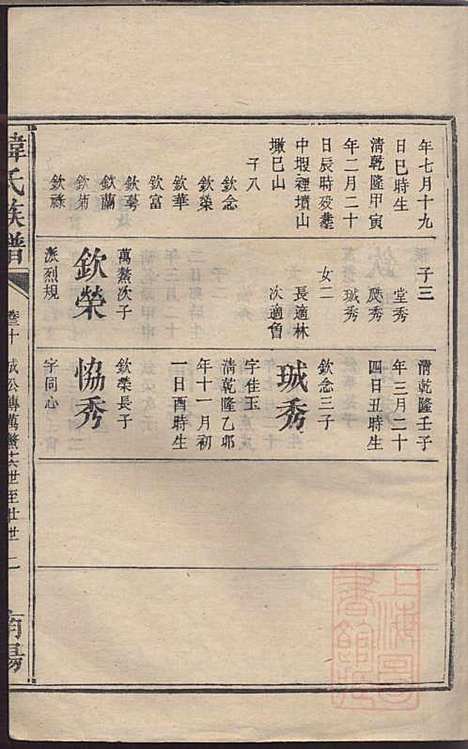 年七月十九
日巳時生
清乾隆甲寅
年二月二十
日辰時歿塟
中堰裡壋山
墩巳山
子八
欽念
欽榮
欽華
欽富
欽蘭
欽菊
子三
堂秀
瑊秀
女二
長適林
次適魯
欽榮
萬鰲次子
派烈規
清乾隆壬子
年三月二十
四日丑時生
瑊秀
欽念三子
字佳玉
清乾隆乙卯
年十一月初
一日酉時生
恊秀
欽榮長子
字同心
韓氏族譜
卷十
二
南陽
上海圖書館藏